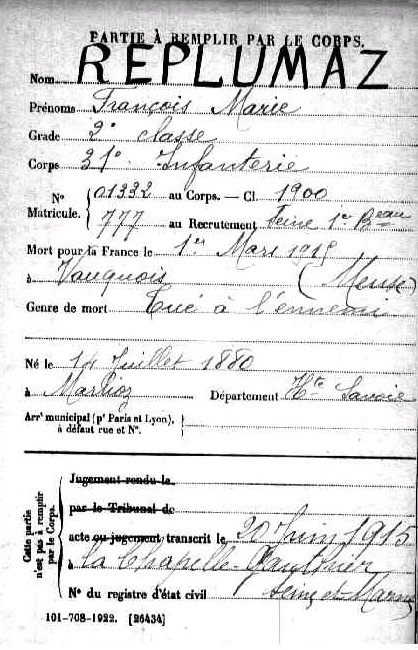 PARTIE À REMPLIR PAR LE CORPS.
Nom REPLUMAZ
Prénoms François Marie
Grade 2e classe
Corps 31e Infanterie
N° 01332 au Corps. — Cl. 1900
Matricule. 777 au Recrutement Seine 1er Beau
Mort pour la France le 1er Mars 1915
à Vauquois (Meuse)
Genre de mort Tué à l'ennemi
Né le 14 Juillet 1880
à Marlioz Département Hte Savoie
Arrt municipal (pr Paris et Lyon),
à défaut rue et N°.
Cette partie
n'est pas à remplir
par le Corps.
Jugement rendu le
par le Tribunal de
acte ou jugement transcrit le 20 Juin 1915
à la Chapelle-Gauthier
Seine et Marne
N° du registre d'état civil
101-708-1922. [26434]